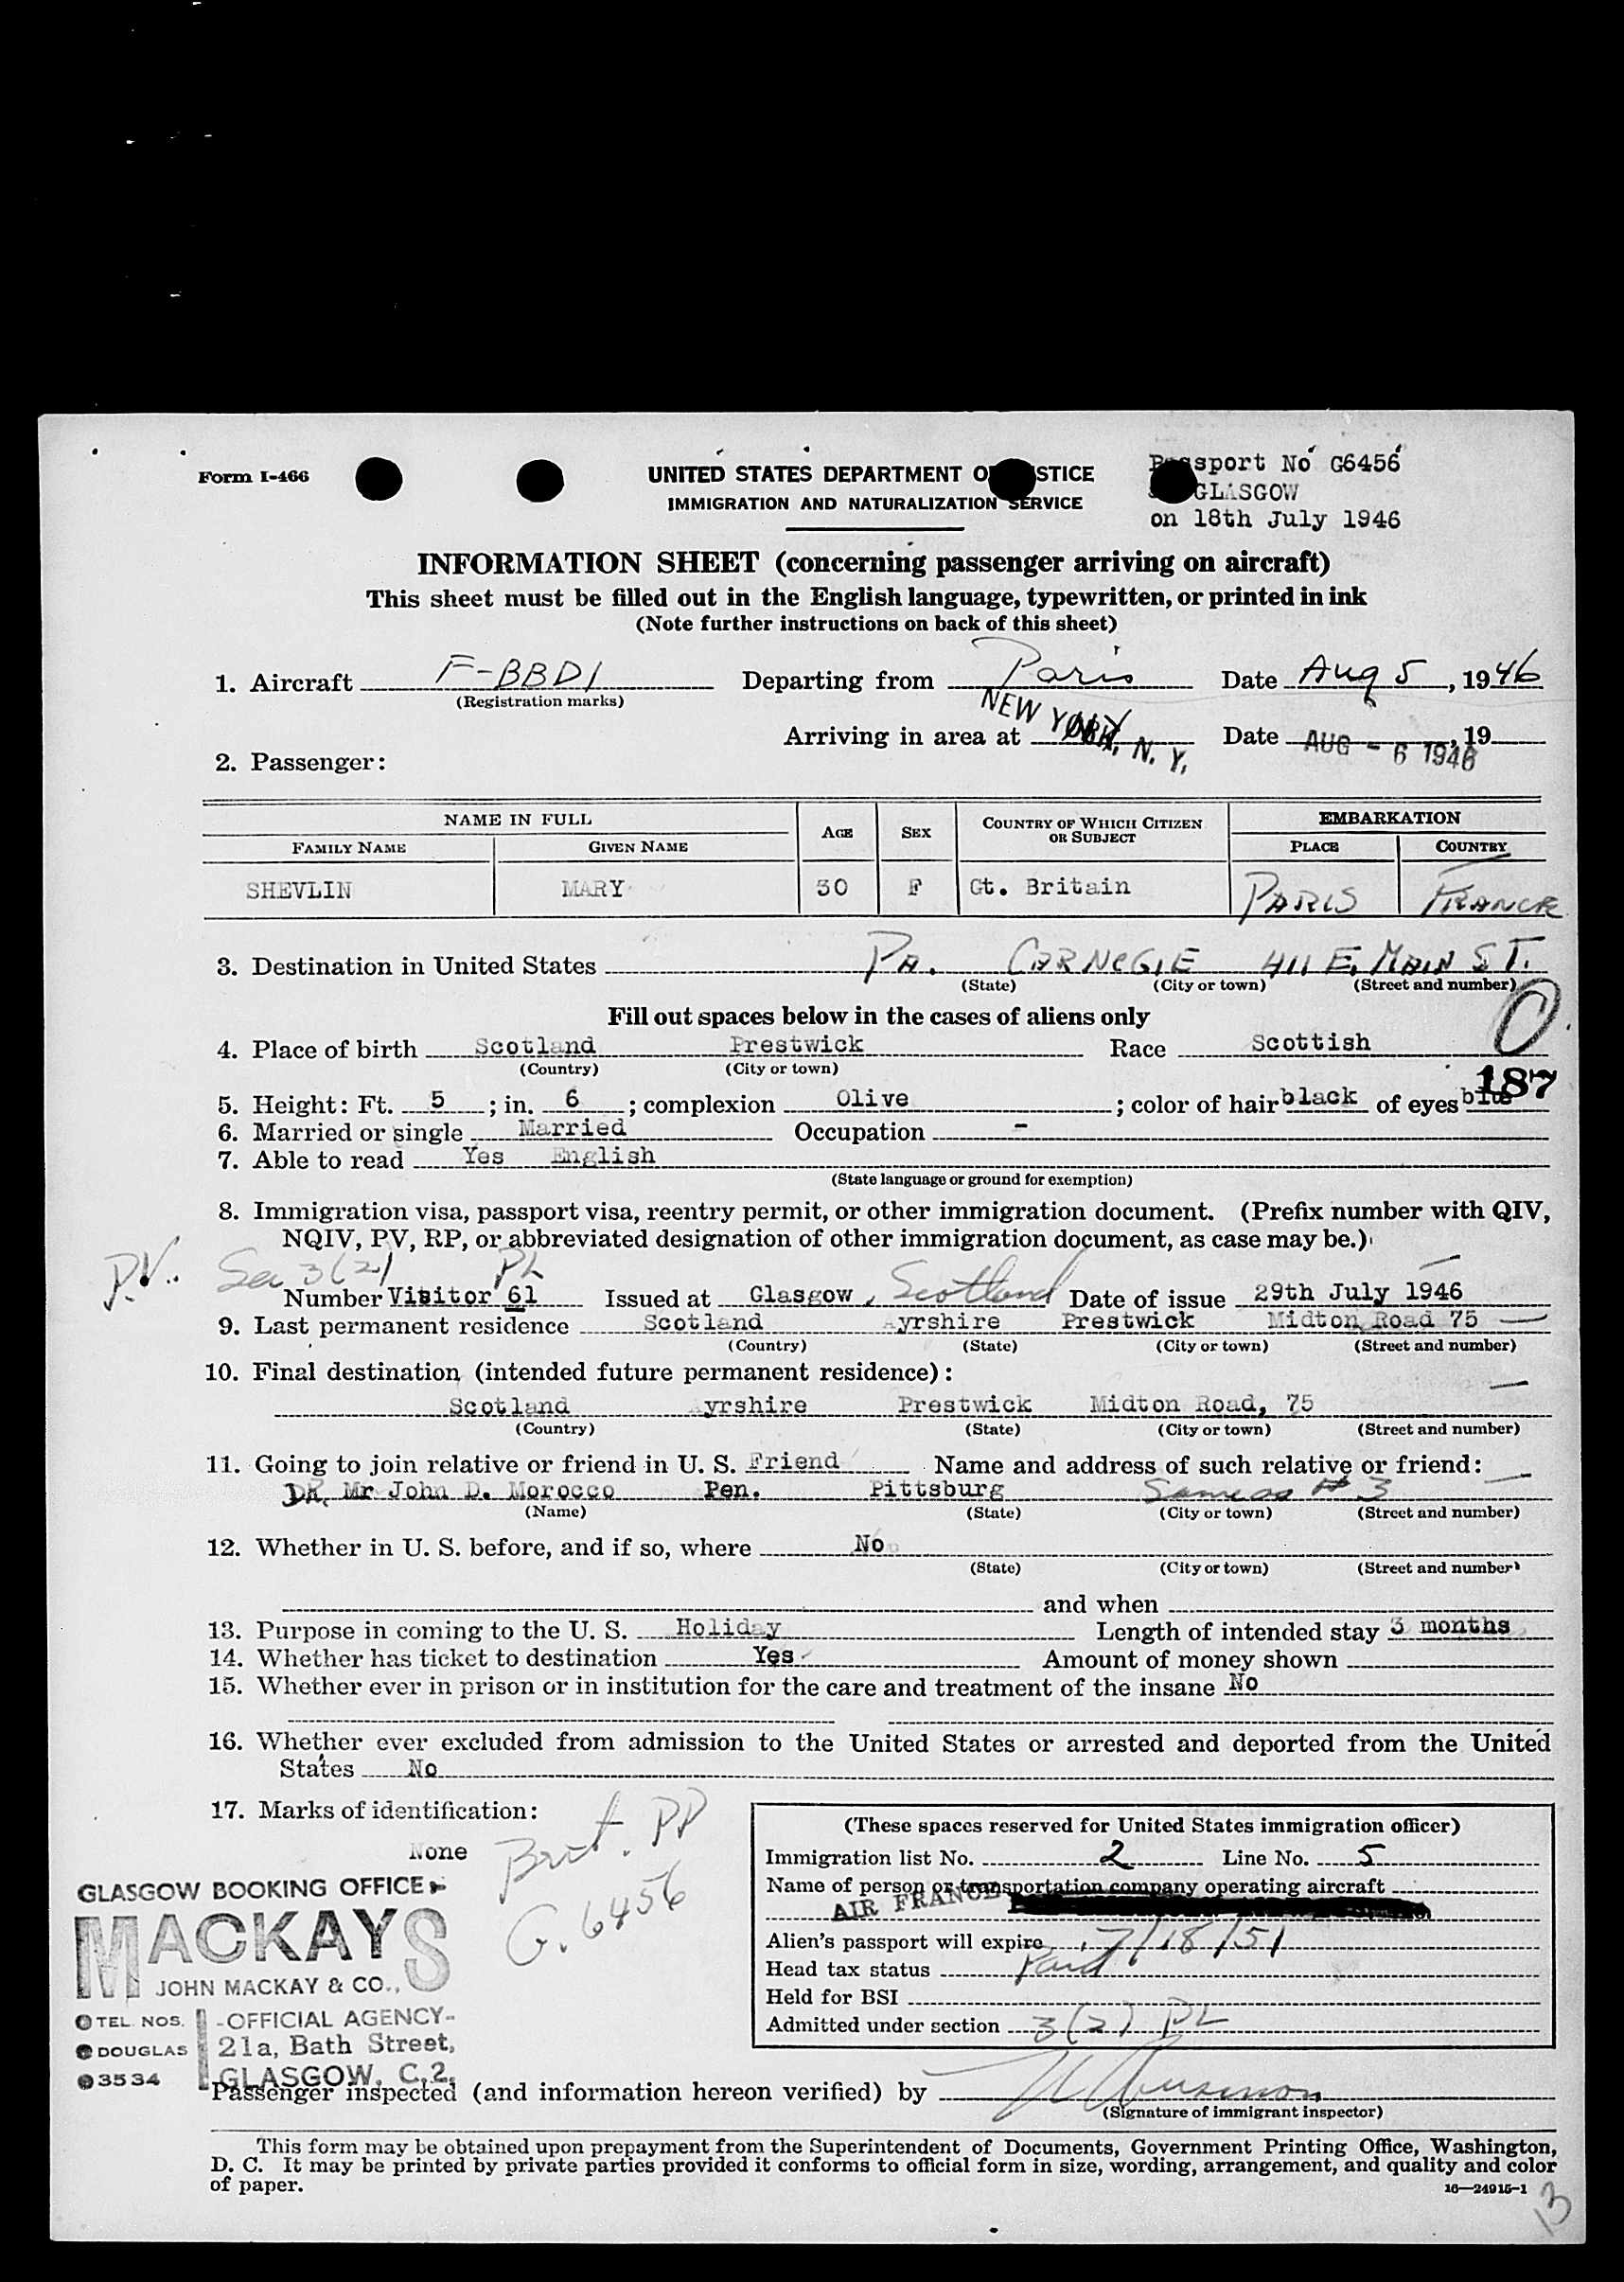 Form I-466
UNITED STATES DEPARTMENT O STICE
IMMIGRATION AND NATURALIZATION SERVICE
Passport No G6456
GLASGOW
on 18th July 1946
INFORMATION SHEET (concerning passenger arriving on aircraft)
This sheet must be filled out in the English language, typewritten, or printed in ink
(Note further instructions on back of this sheet)
1. Aircraft F-BBDI Departing from Paris Date Aug 5, 1946
(Registration marks)
Arriving in area at NEW YORK, N. Y. Date AUG - 6 1946, 19
2. Passenger:
NAME IN FULL AGE SEX COUNTRY OF WHICH CITIZEN OR SUBJECT EMBARKATION
FAMILY NAME GIVEN NAME PLACE COUNTRY
SHEVLIN MARY 30 F Gt. Britain PARIS FRANCE
3. Destination in United States PA. CARNEGIE 411 E. MAIN ST.
(State) (City or town) (Street and number)
Fill out spaces below in the cases of aliens only
4. Place of birth Scotland Prestwick Race Scottish
(Country) (City or town)
187
5. Height: Ft. 5; in. 6; complexion Olive; color of hair black of eyes
6. Married or single Married Occupation -
7. Able to read Yes English
(State language or ground for exemption)
8. Immigration visa, passport visa, reentry permit, or other immigration document. (Prefix number with QIV,
NQIV, PV, RP, or abbreviated designation of other immigration document, as case may be.)
P.V. Sec 3(2) PL
Number Visitor 61 Issued at Glasgow, Scotland Date of issue 29th July 1946
9. Last permanent residence Scotland Ayrshire Prestwick Midton Road 75
(Country) (State) (City or town) (Street and number)
10. Final destination (intended future permanent residence):
Scotland Ayrshire Prestwick Midton Road, 75
(Country) (State) (City or town) (Street and number)
11. Going to join relative or friend in U. S. Friend Name and address of such relative or friend:
DR. Mr John D. Morocco Pen. Pittsburg Same as # 3
(Name) (State) (City or town) (Street and number)
12. Whether in U. S. before, and if so, where No
(State) (City or town) (Street and number)
and when
13. Purpose in coming to the U. S. Holiday Length of intended stay 3 months
14. Whether has ticket to destination Yes Amount of money shown
15. Whether ever in prison or in institution for the care and treatment of the insane No
16. Whether ever excluded from admission to the United States or arrested and deported from the United
States No
17. Marks of identification:
None
Brit. PP
G. 6456
(These spaces reserved for United States immigration officer)
Immigration list No. 2 Line No. 5
Name of person or transportation company operating aircraft
AIR FRANCE
Alien's passport will expire 7/18/51
Head tax status Paid
Held for BSI
Admitted under section 3(2) PL
GLASGOW BOOKING OFFICE
MACKAYS
JOHN MACKAY & CO.,
TEL. NOS. -OFFICIAL AGENCY-
DOUGLAS 21a, Bath Street,
3534 GLASGOW. C.2.
Passenger inspected (and information hereon verified) by
(Signature of immigrant inspector)
This form may be obtained upon prepayment from the Superintendent of Documents, Government Printing Office, Washington,
D. C. It may be printed by private parties provided it conforms to official form in size, wording, arrangement, and quality and color
of paper.
16—24915-1
13